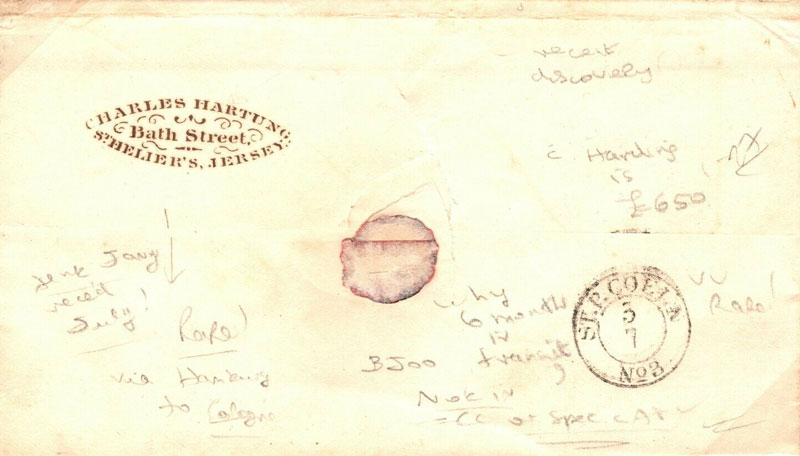 recent
discovery!
CHARLES HARTUNG
Bath Street,
ST HELIER'S, JERSEY.
c Harding
is
£650
sent Jany
reced
July!
Rare!
via Hamburg
to Cologne
why
6 months
in
transit
?
BJ00
Not in
CC or Spec CAT
vv
Rare!
ST.P.COELN
3
7
No3